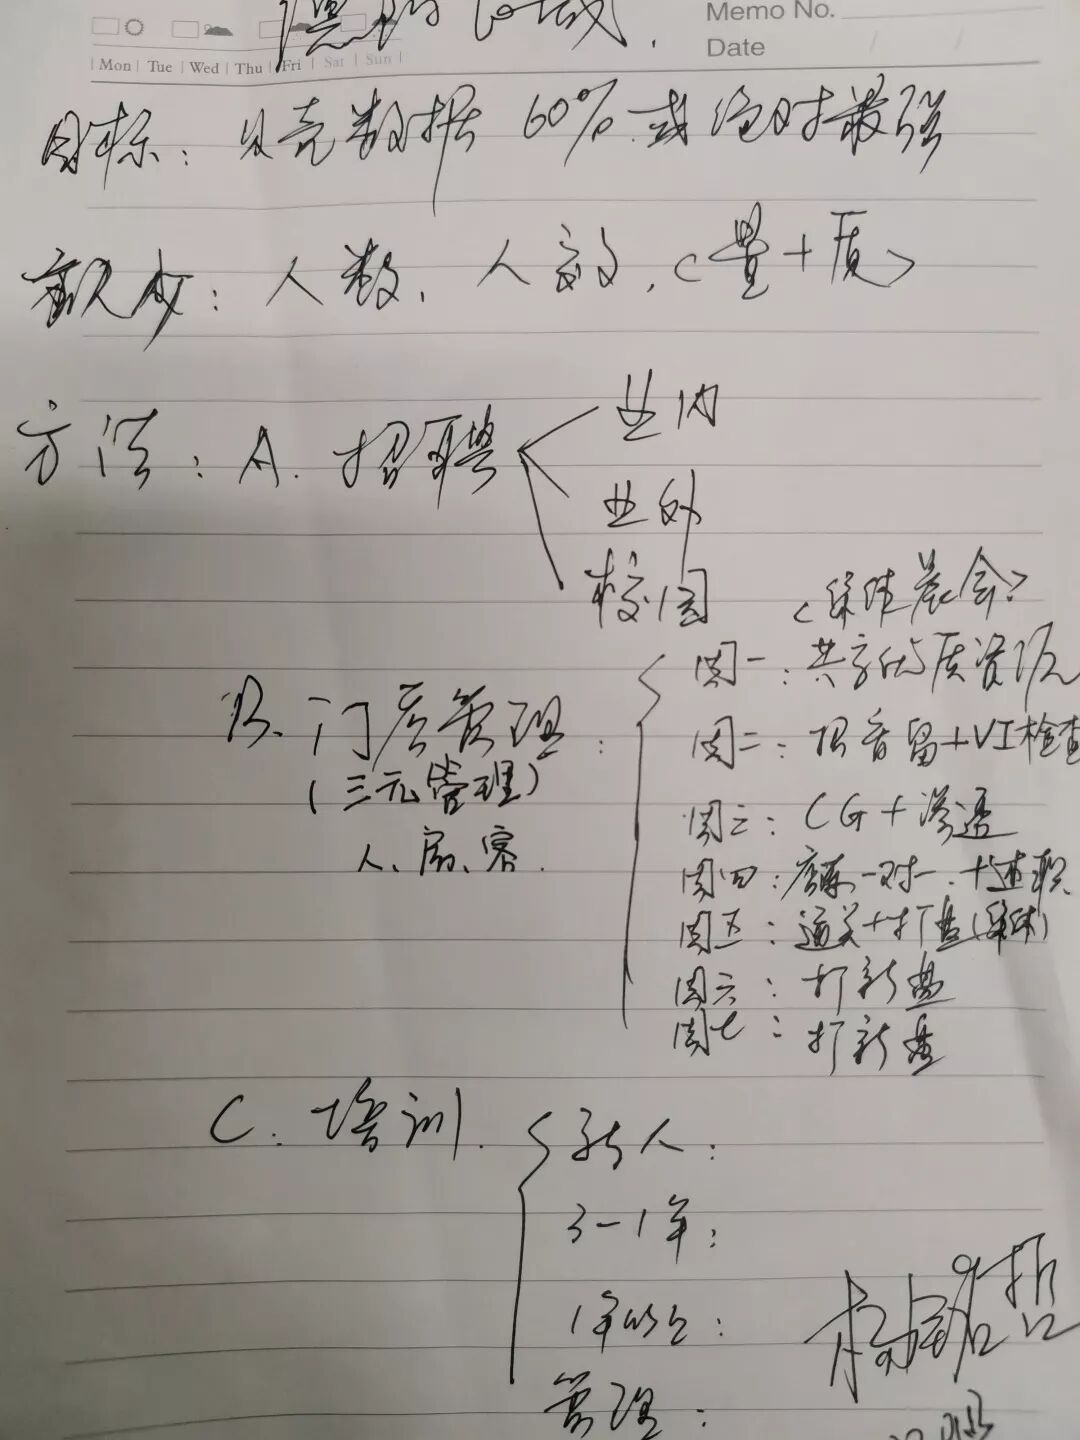 Memo No.
Date
Mon Tue Wed Thu Fri Sat Sun
目标：贝壳数据 60% 或绝对最强
：人数、人效、（量+质）
方法：A. 招聘
业内
业外
校园
B. 门店管理：
（三元管理）
人、房、客.
晨会）
周一：共享优质资源
周二：录音留+VI检查
周三：CG+渗透
周四：一对一、+述职
周五：通关+打盘
周六：打新盘
周七：打新盘
C. 培训.
新人：
3-1年：
1年以上：
管理：